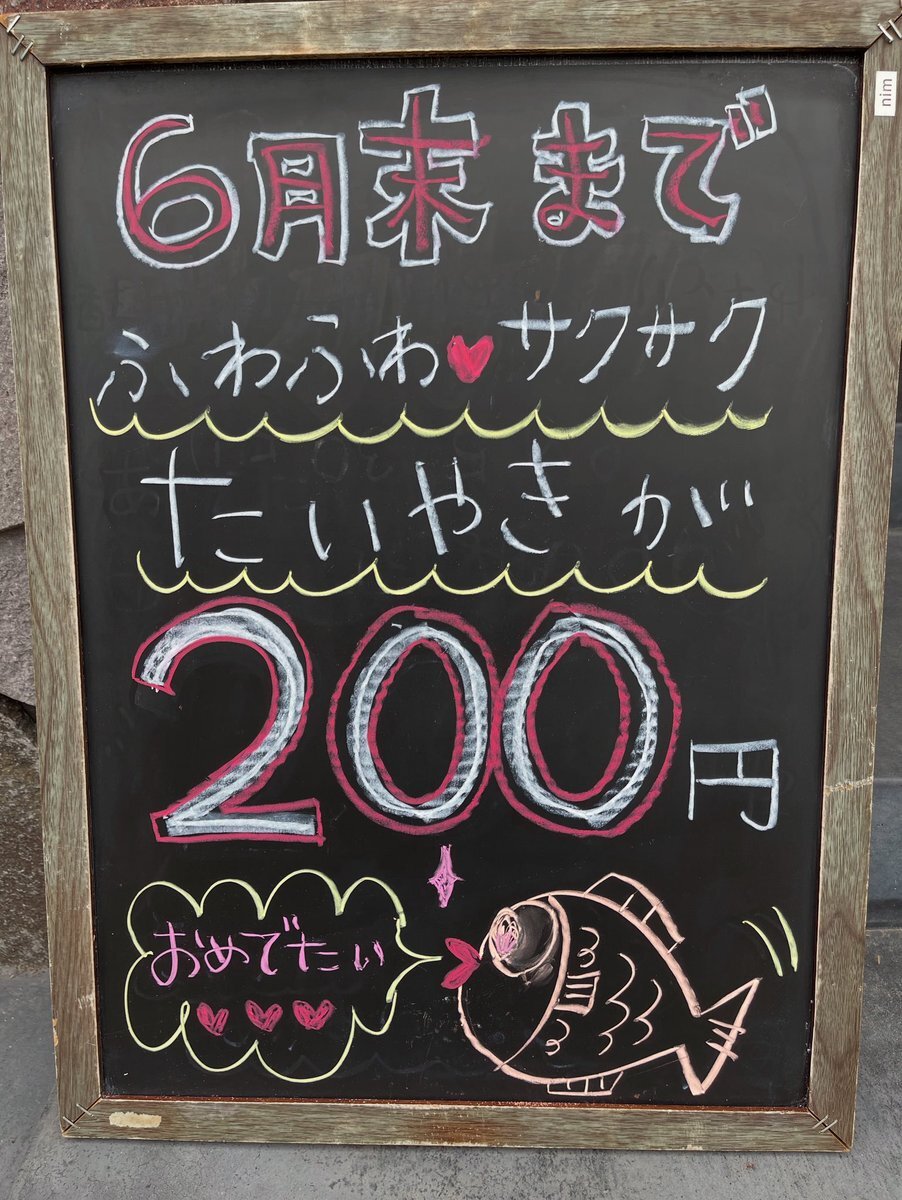 6月末まで
ふわふわ♥サクサク
たいやきが
200円
おめでたい
nim